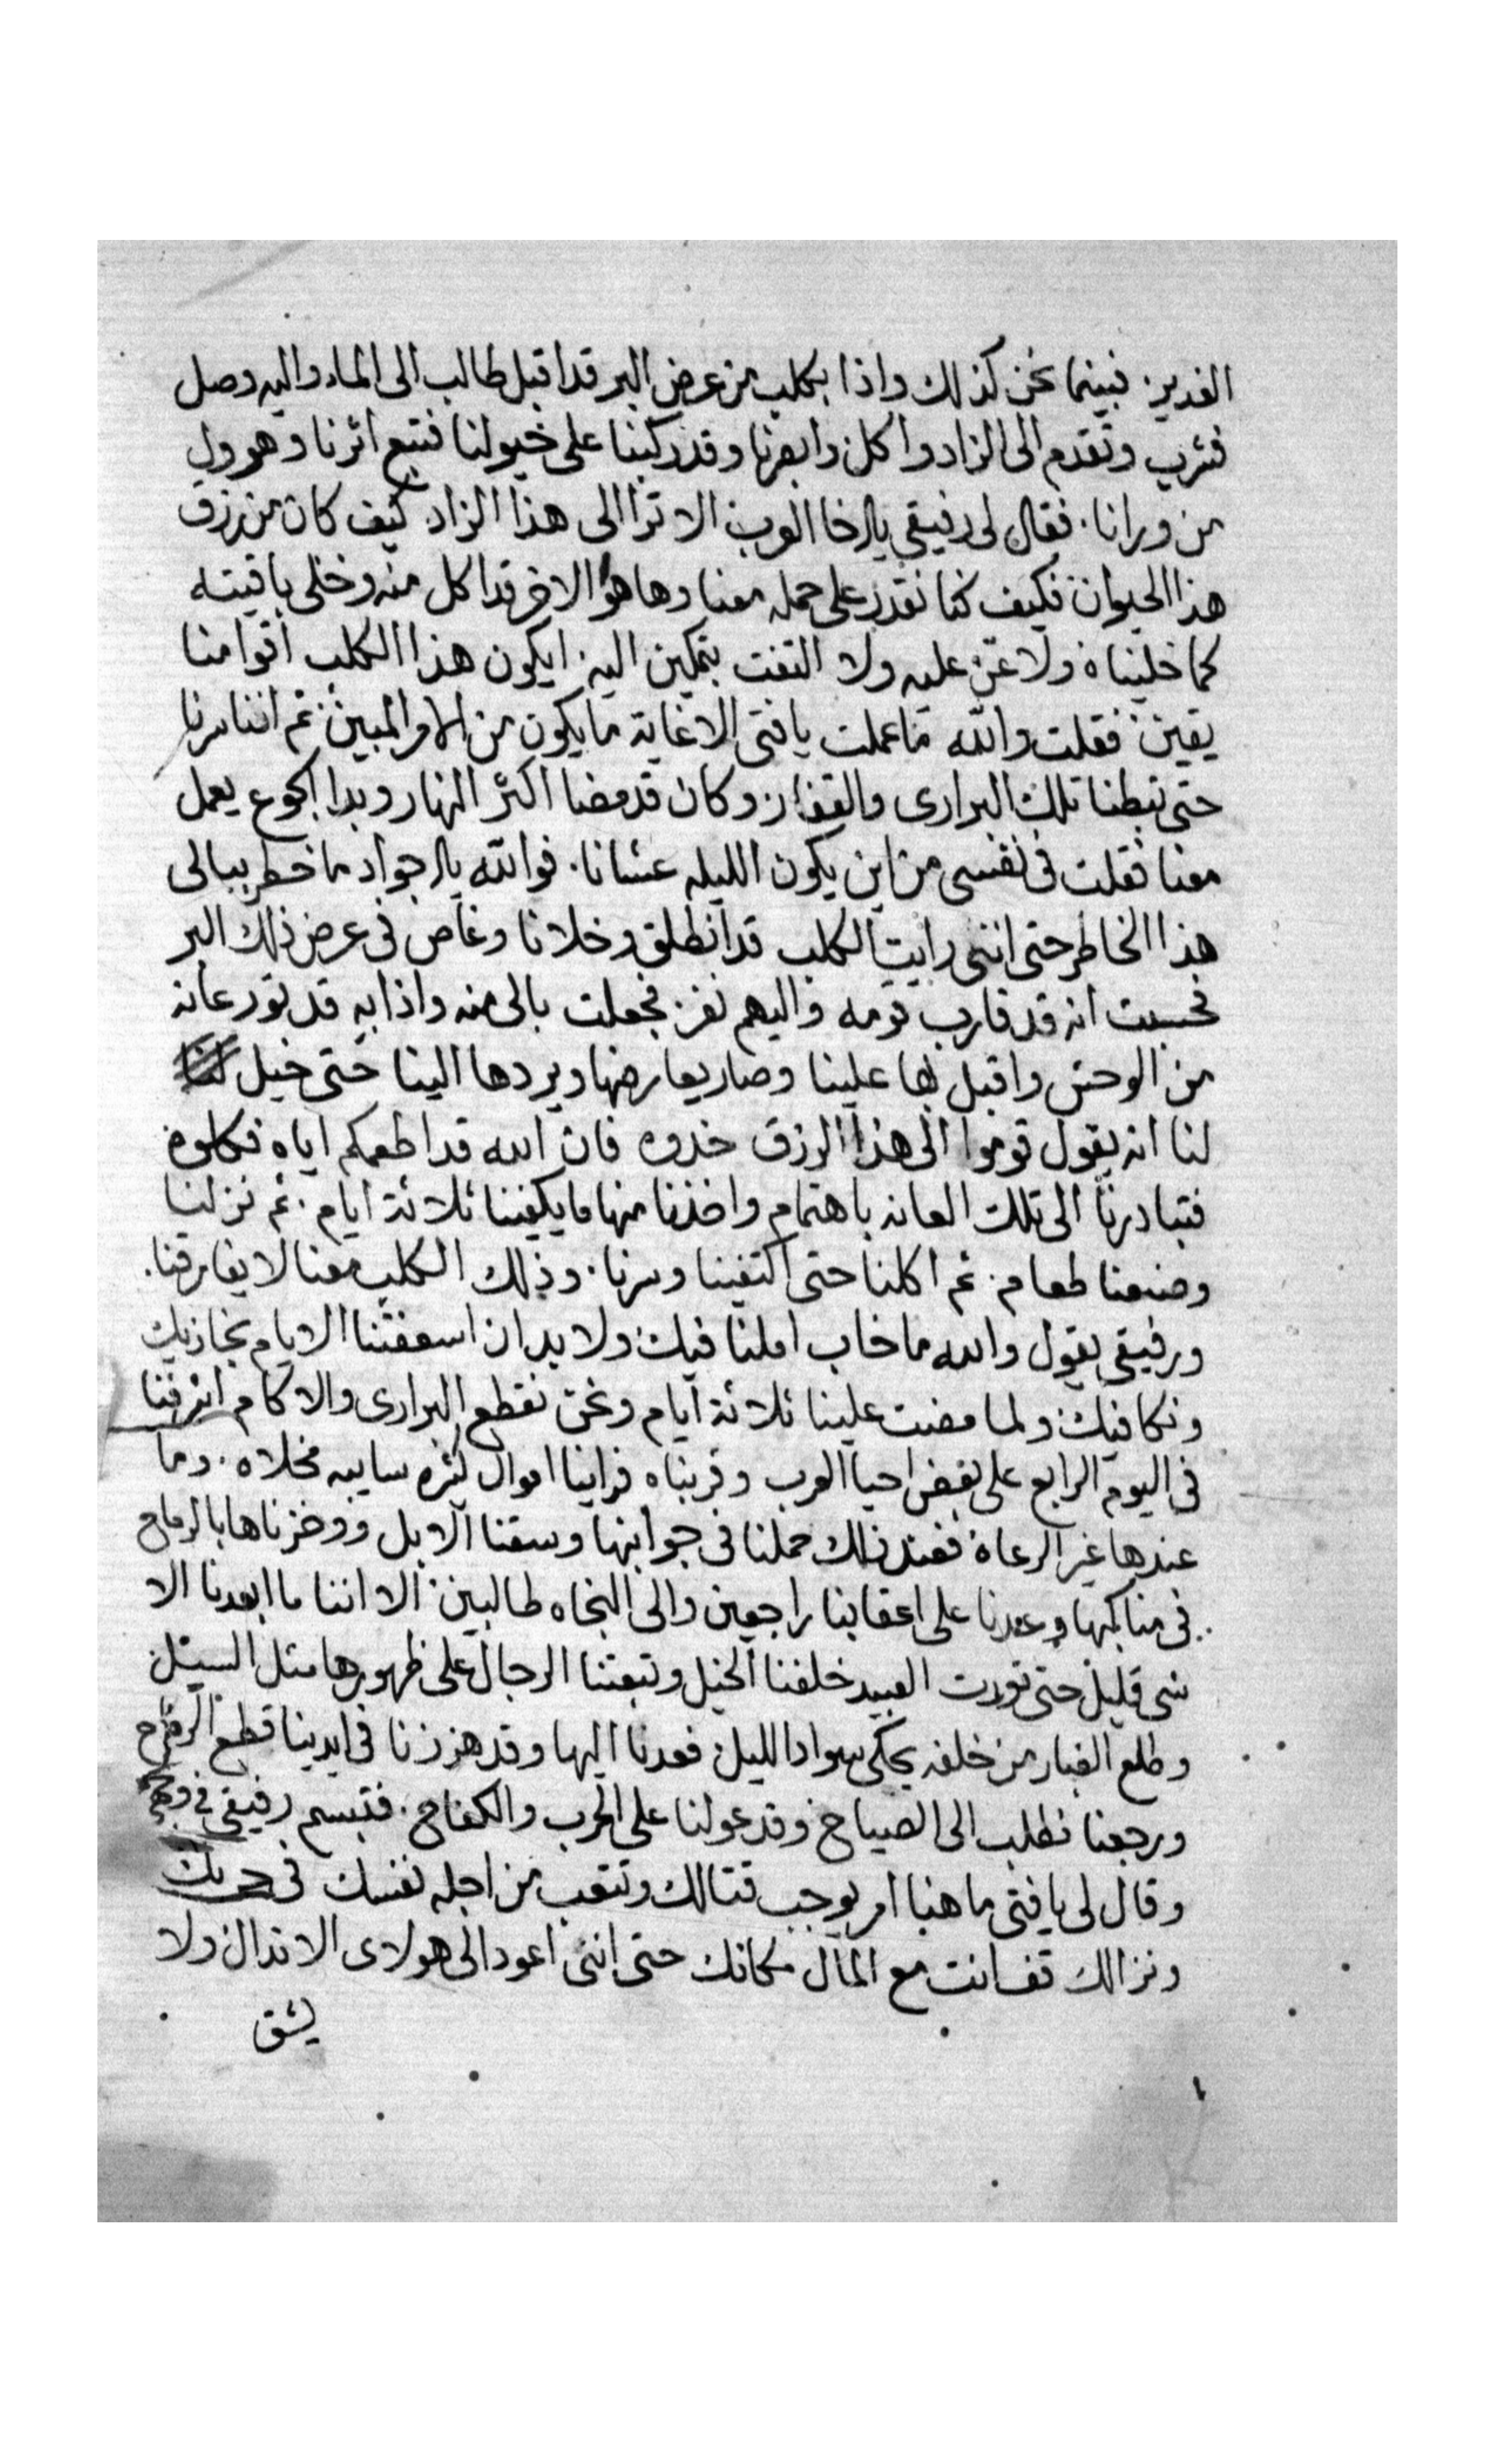 الغدير. فبينما نحن كذلك واذا بكلب من عرض البر قد اقبل طالب الى الماء واليه وصل
فشرب وتقدم الى الزاد واكل وابصرنا وقد ركبنا على خيولنا فتبع اثرنا وهرول
من ورانا. فقال لى رفيقى يا اخا العرب الا ترا الى هذا الزاد كيف كان من رزق
هذا الحيوان فكيف كنا نقدر على حمله معنا وها هوا الاخر قد اكل منه وخلى باقيته
كما خليناه ولا عن عليه ولا التفت بتمكين اليه. ايكون هذا الكلب اقوا منا
يقين فقلت والله ما عملت يا فتى الا غاية ما يكون من الامر المبين. ثم اننا سرنا
حتى تبطنا تلك البرارى والقفار وكان قد مضا اكثر النهار وبدا الجوع يعمل
معنا فقلت فى نفسى من اين يكون الليله عشانا. فوالله يا الاجواد ما خطر ببالى
هذا الخاطر حتى اننى رايت الكلب قد انطلق وخلانا وغاص فى عرض ذلك البر
فحسبت انه قد قارب قومه واليهم نفر. فجعلت بالى منه واذا به قد ثور عانه
من الوحش واقبل بها علينا وصار يعارضها ويردها الينا حتى خيل
لنا انه يقول قوموا الى هذا الرزق خدوه فان الله قد اطعمكم اياه فكلوه
فتبادرنا الى تلك العانه باهتمام واخذنا منها ما يكفينا ثلاثة ايام. ثم نزلنا
وصنعنا طعام. ثم اكلنا حتى اكتفينا وسرنا. وذلك الكلب معنا لا يفارقنا.
ورفيقى يقول والله ما خاب املنا فيك ولا بد ان اسعفتنا الايام نجازيك
ونكافيك ولما مضت علينا ثلاثة ايام ونحن نقطع البرارى والاكام اشرفنا
فى اليوم الرابع على بعض احيا العرب وقربناه فراينا اموال كثره سايبه مخلاه. وما
عندها غير الرعاة فعند ذلك حملنا فى جوانبها وسقنا الابل ووخزناها بالرماح
فى مناكبها وعدنا على اعقابنا راجعين والى النجاه طالبين الا اننا ما ابعدنا الا
شى قليل حتى ثورت العبيد خلفنا الخيل وتبعتنا الرجال على ظهورها مثل السيل
وطلع الغبار من خلفه يحكى سواد الليل فعدنا اليها وقد هززنا فى ايدينا قطع الرماح
ورجعنا نطلب الى الصياح وقد عولنا على الحرب والكفاح. فتبسم رفيقى فى وجهى
وقال لى يا فتى ما هنا امر يوجب قتالك وتتعب من اجله نفسك فى حربك
ونزالك قف انت مع المال مكانك حتى اننى اعود الى هولاى الاندال ولا
يشق